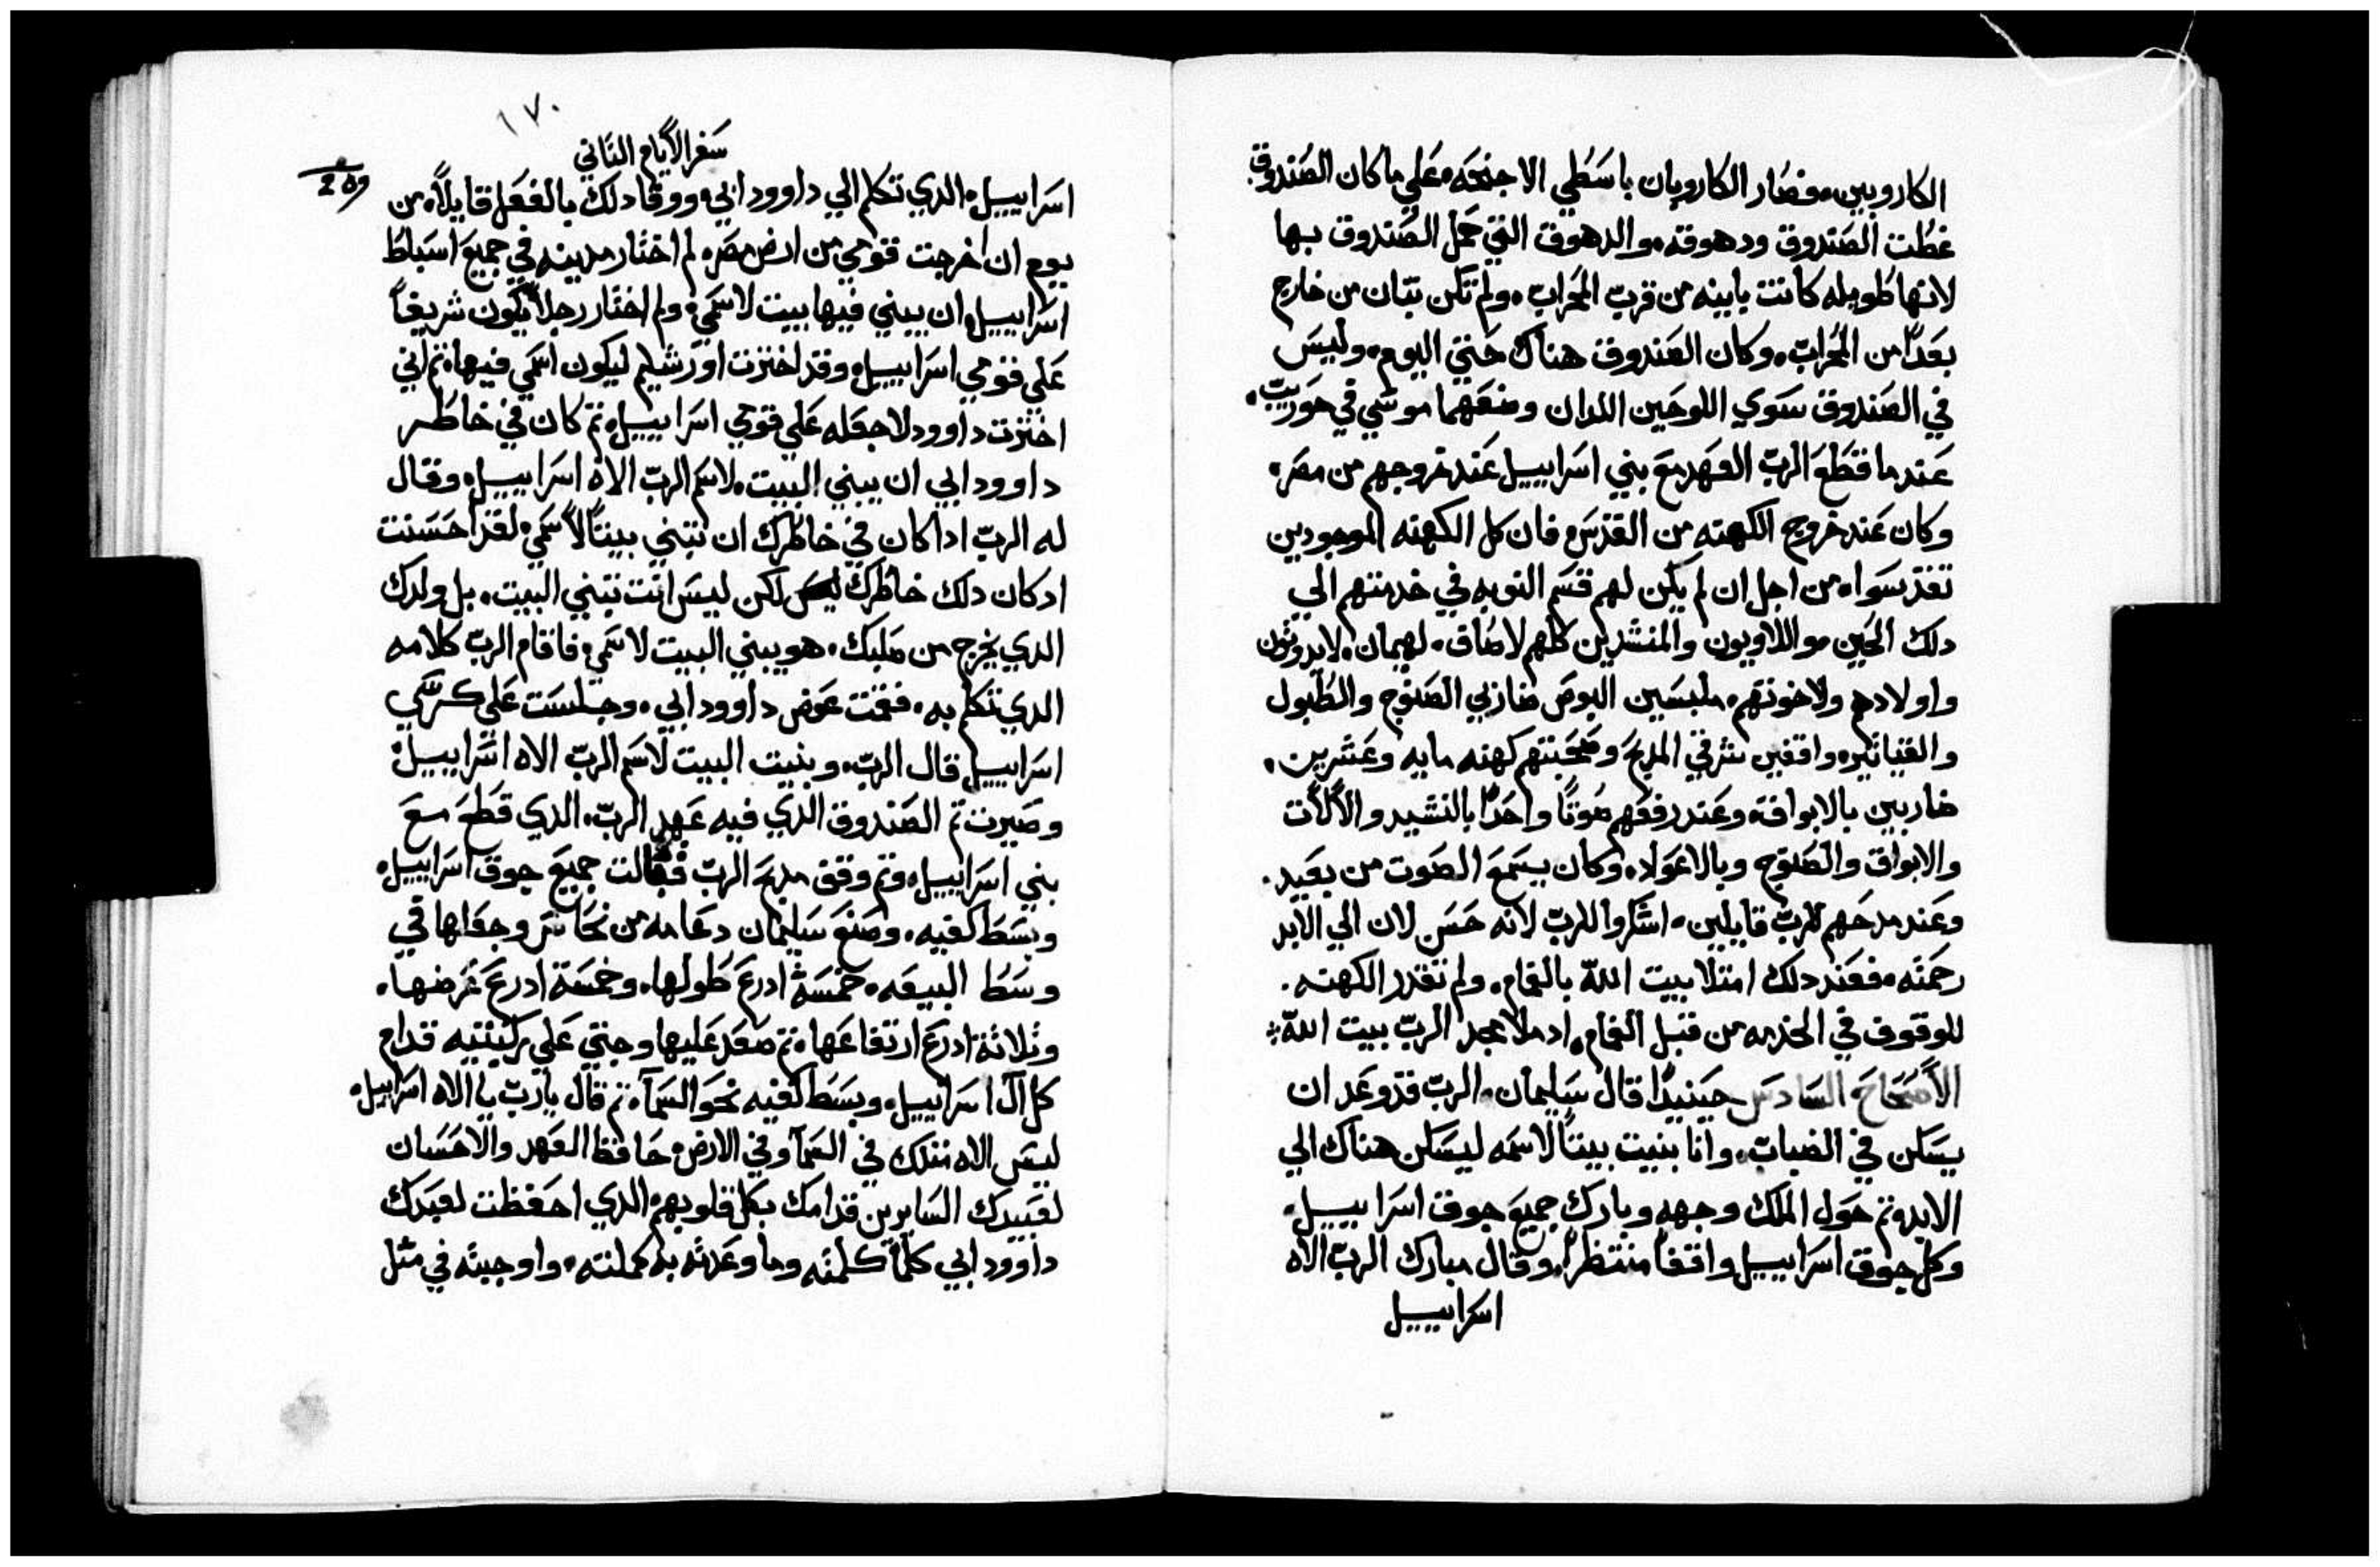 الكاروبين. فصار الكاروبان باسطي الاجنحه. علي ما كان الصندوق
غطت الصندوق ودهوقه. والدهوق التي حمل الصندوق بها
لانها طويله كانت باينه من قرب المحراب. ولم تكن تبان من خارج
بعدًا من المحراب. وكان الصندوق هناك حتي اليوم. وليس
في الصندوق سوي اللوحين اللدان وضعهما موسي في حوريب.
عندما قطع الرب العهد مع بني اسراييل عند خروجهم من مصر.
وكان عند خروج الكهنه من القدس فان كل الكهنه الموجودين
تقدسوا. من اجل ان لم يكن لهم قسم النوبه في خدمتهم الي
دلك الحين مو اللاويون والمنشدين كلهم لاصاف. لهيمان. لايدوثون
واولادهم ولاخوتهم. ملبسين البوص ضازبي الصنوج والطبول
والقيتاتير. واقفين شرقي المدبح وصحبتهم كهنه مايه وعشرين.
ضاربين بالابواق. وعند رفعهم صوتًا واحدًا بالنشيد والالات
والابواق والصنوج وبالاعواد. وكان يسمع الصوت من بعيد.
وعند مدحهم للرب قايلين. اشكروا للرب لانه حسن لان الي الابد
رحمته. فعند دلك امتلا بيت الله بالغمام. ولم تقدر الكهنه.
للوقوف في الخدمه من قبل الغمام. اد ملا مجد الرب بيت الله
الأصحاح السادس حينيدًا قال سليمان. الرب قد وعد ان
يسكن في الضباب. وانا بنيت بيتًا لاسمه ليسكن هناك الي
الابد. تم حول الملك وجهه وبارك جميع جوق اسراييل.
وكل جوق اسراييل واقفًا منتظرًا. وقال مبارك الرب الاه
اسراييل
١٧٠
سفر الأيام التاني
209
اسراييل. الدي تكلم الي داوود ابي. ووفا دلك بالفعل قايلاً. من
يوم ان اخرجت قومي من ارض مصر. لم اختار مدينه في جميع اسباط
اسراييل. ان يبني فيها بيت لاسمي. ولم اختار رجلاً يكون شريفًا
علي قومي اسراييل. وقد اخترت اورشليم ليكون اسمي فيها. تم اني
اخترت داوود لاجعله علي قومي اسراييل. تم كان في خاطر
داوود ابي ان يبني البيت. لاسم الرب الاه اسراييل. وقال
له الرب ادا كان في خاطرك ان تبني بيتًا لأسمي. لقد احسنت
اد كان دلك خاطرك لكن ليس انت تبني البيت. بل ولدك
الدي يخرج من صلبك. هو يبني البيت لاسمي. فاقام الرب كلامه
الدي تكلم به. فقمت عوض داوود ابي. وجلست علي كرسي
اسراييل. قال الرب. وبنيت البيت لاسم الرب الاه اسراييل.
وصيرت تم الصندوق الدي فيه عهد الرب. الدي قطع مع
بني اسراييل. وتم وقف مدبح الرب فقالت جميع جوق اسراييل.
وبسط كفيه. وصنع سليمان دعامه من نحاس وجعلها في
وسط البيعه. خمسة ادرع طولها. وخمسة ادرع عرضها.
وثلاثة ادرع ارتفاعها. تم صعد عليها وجتي علي ركبتيه قدام
كل آل اسراييل. وبسط كفيه نحو السمآ. تم قال يا رب يا الاه اسراييل.
ليس الاه متلك في السمآ وفي الارض. حافظ العهد والاحسان
لعبيدك السايرين قدامك بكل قلوبهم. الدي احفظت لعبدك
داوود ابي كلما كلمته وما وعدته به كملته. واوجبته في مثل